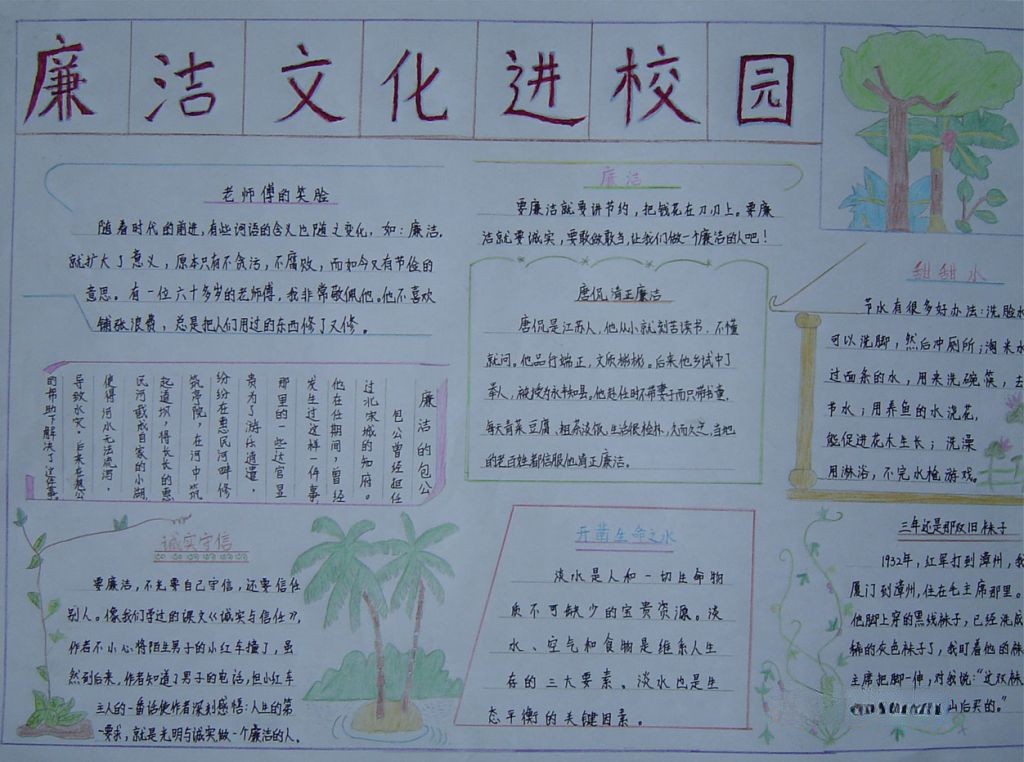 廉洁文化进校园
老师傅的笑脸
随着时代的前进,有些词语的含义也随之变化,如:廉洁,
就扩大了意义,原本只有不贪污,不腐败,而如今又有节俭的
意思。有一位六十多岁的老师傅,我非常敬佩他。他不喜欢
铺张浪费,总是把人们用过的东西修了又修。
廉洁
要廉洁就要讲节约,把钱花在刀刃上。要廉
洁就要诚实,要敢做敢当,让我们做一个廉洁的人吧!
唐侃清正廉洁
唐侃是江苏人,他从小就刻苦读书,不懂
就问。他品行端正,文质彬彬。后来他乡试中了
举人,被授为永丰知县,他赴任时不带妻子而只带书童,
每天青菜豆腐、粗茶淡饭,生活很检朴,久而久之,当地
的老百姓都信服他清正廉洁。
甜甜水
节水有很多好办法:洗脸水
可以洗脚,然后冲厕所;淘米水
过面条的水,用来洗碗筷,去
节水;用养鱼的水浇花,
能促进花木生长;洗澡
用淋浴,不完水枪游戏。
廉洁的包公
包公曾经担任
过北宋城的知府。
他在任期间,曾经
发生过这样一件事,
那里的一些达官显
贵为了游乐逍遥,
纷纷在惠民河畔修
筑亭院,在河中筑
起道坝,将长长的惠
民河截成自家的小湖,
使得河水无法流泻,
导致水灾。后来在包公
的帮助下解决了这件事。
诚实守信
要廉洁,不光要自己守信,还要信任
别人。像我们学过的课文《诚实与信任》,
作者不小心将陌生男子的小红车撞了,虽
然到后来,作者知道了男子的电话,但小红车
主人的一番话使作者深刻感悟:人生的第
一要求,就是光明与诚实做一个廉洁的人。
开凿生命之水
淡水是人和一切生命物
质不可缺少的宝贵资源。淡
水、空气和食物是维系人生
存的三大要素。淡水也是生
态平衡的关键因素。
三年还是那双旧袜子
1932年,红军打到漳州,我
厦门到漳州,住在毛主席那里。
他脚上穿的黑线袜子,已经洗成
稀的灰色袜子了,我盯着他的袜
主席把脚一伸,对我说:"这双袜
山后买的。"